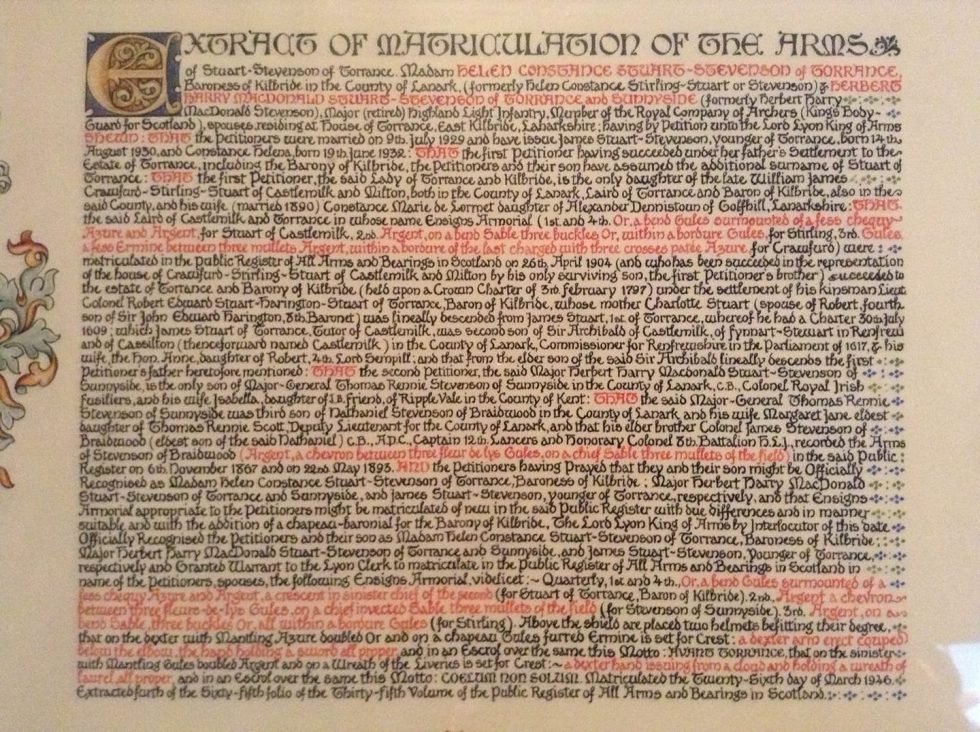 EXTRACT OF MATRICULATION OF THE ARMS
of Stuart-Stevenson of Torrance. Madam HELEN CONSTANCE STUART-STEVENSON of TORRANCE,
Baroness of Kilbride in the County of Lanark, (formerly Helen Constance Stirling-Stuart or Stevenson) & HERBERT
HARRY MACDONALD STUART-STEVENSON of TORRANCE and SUNNYSIDE (formerly Herbert Harry
MacDonald Stevenson), Major (retired) Highland Light Infantry, Member of the Royal Company of Archers (King's Body-
Guard for Scotland), spouses, residing at House of Torrance, East Kilbride, Lanarkshire; having by Petition unto the Lord Lyon King of Arms
SHEWN: THAT the Petitioners were married on 9th. July 1929 and have issue James Stuart-Stevenson, younger of Torrance, born 14th.
August 1930, and Constance Helena, born 19th. June 1932: THAT the first Petitioner having succeeded under her father's Settlement to the
Estate of Torrance, including the Barony of Kilbride, the Petitioners and their son have assumed the additional surname of Stuart of
Torrance: THAT the first Petitioner, the said Lady of Torrance and Kilbride, is the only daughter of the late William James
Crawfurd-Stirling-Stuart of Castlemilk and Milton, both in the County of Lanark, Laird of Torrance and Baron of Kilbride, also in the
said County, and his wife (married 1890) Constance Marie de Lormet daughter of Alexander Dennistoun of Golfhill, Lanarkshire: THAT
the said Laird of Castlemilk and Torrance in whose name Ensigns Armorial (1st and 4th. Or, a bend Gules surmounted of a fess chequy
Azure and Argent, for Stuart of Castlemilk, 2nd. Argent, on a bend Sable three buckles Or, within a bordure Gules, for Stirling, 3rd. Gules,
a fess Ermine between three mullets Argent, within a bordure of the last charged with three crosses patée Azure for Crawfurd) were
matriculated in the Public Register of All Arms and Bearings in Scotland on 26th. April 1904 (and who has been succeeded in the representation
of the house of Crawfurd-Stirling-Stuart of Castlemilk and Milton by his only surviving son, the first Petitioner's brother) succeeded to
the estate of Torrance and Barony of Kilbride (held upon a Crown Charter of 3rd. February 1797) under the settlement of his kinsman Lieut.
Colonel Robert Edward Stuart-Harington-Stuart of Torrance, Baron of Kilbride, whose mother Charlotte Stuart (spouse of Robert, fourth
son of Sir John Edward Harington, 8th. Baronet) was lineally descended from James Stuart, 1st. of Torrance, whereof he had a Charter 30th July
1609; which James Stuart of Torrance, Tutor of Castlemilk, was second son of Sir Archibald of Castlemilk, of Fynnart-Stewart in Renfrew
and of Cassilton (thenceforward named Castlemilk) in the County of Lanark, Commissioner for Renfrewshire in the Parliament of 1617, & his
wife, the Hon. Anne, daughter of Robert, 4th. Lord Sempill; and that from the elder son of the said Sir Archibald lineally descends the first
Petitioner's father heretofore mentioned: THAT the second Petitioner, the said Major Herbert Harry Macdonald Stuart-Stevenson of
Sunnyside, is the only son of Major-General Thomas Rennie Stevenson of Sunnyside in the County of Lanark, C.B., Colonel Royal Irish
Fusiliers, and his wife Isabella, daughter of J.B. Friend, of Ripple Vale in the County of Kent: THAT the said Major-General Thomas Rennie
Stevenson of Sunnyside was third son of Nathaniel Stevenson of Braidwood in the County of Lanark and his wife Margaret Jane eldest
daughter of Thomas Rennie Scott, Deputy Lieutenant for the County of Lanark, and that his elder brother Colonel James Stevenson of
Braidwood (eldest son of the said Nathaniel) C.B., A.D.C., Captain 12th. Lancers and Honorary Colonel 8th. Battalion H.L.I., recorded the Arms
of Stevenson of Braidwood (Argent, a chevron between three fleur de lys Gules, on a chief Sable three mullets of the field) in the said Public
Register on 6th. November 1867 and on 22nd. May 1893. AND the Petitioners having Prayed that they and their son might be Officially
Recognised as Madam Helen Constance Stuart-Stevenson of Torrance, Baroness of Kilbride: Major Herbert Harry MacDonald
Stuart-Stevenson of Torrance and Sunnyside, and James Stuart-Stevenson, younger of Torrance, respectively, and that Ensigns
Armorial appropriate to the Petitioners might be matriculated of new in the said Public Register with due differences and in manner
suitable and with the addition of a chapeau-baronial for the Barony of Kilbride, The Lord Lyon King of Arms by Interlocutor of this date
Officially Recognised the Petitioners and their son as Madam Helen Constance Stuart-Stevenson of Torrance, Baroness of Kilbride;
Major Herbert Harry MacDonald Stuart-Stevenson of Torrance and Sunnyside, and James Stuart-Stevenson, Younger of Torrance,
respectively and Granted Warrant to the Lyon Clerk to matriculate in the Public Register of All Arms and Bearings in Scotland in
name of the Petitioners, spouses, the following Ensigns Armorial, videlicet:~ Quarterly, 1st and 4th., Or, a bend Gules surmounted of a
fess chequy Azure and Argent, a crescent in sinister chief of the second (for Stuart of Torrance, Baron of Kilbride). 2nd. Argent a chevron
between three fleurs-de-lys Gules, on a chief invected Sable three mullets of the field (for Stevenson of Sunnyside). 3rd. Argent, on a
bend Sable, three buckles Or, all within a bordure Gules (for Stirling). Above the shield are placed two helmets befitting their degree,
that on the dexter with Mantling Azure doubled Or and on a chapeau Gules furred Ermine is set for Crest: a dexter arm erect couped
below the elbow, the hand holding a sword all proper, and in an Escrol over the same this Motto: AVANT TORRANCE, that on the sinister
with Mantling Gules doubled Argent and on a Wreath of the Liveries is set for Crest:~ a dexter hand issuing from a cloud and holding a wreath of
laurel all proper, and in an Escrol over the same this Motto: COELUM NON SOLUM. Matriculated the Twenty-Sixth day of March 1946.
Extracted furth of the Sixty-fifth folio of the Thirty-fifth Volume of the Public Register of All Arms and Bearings in Scotland.